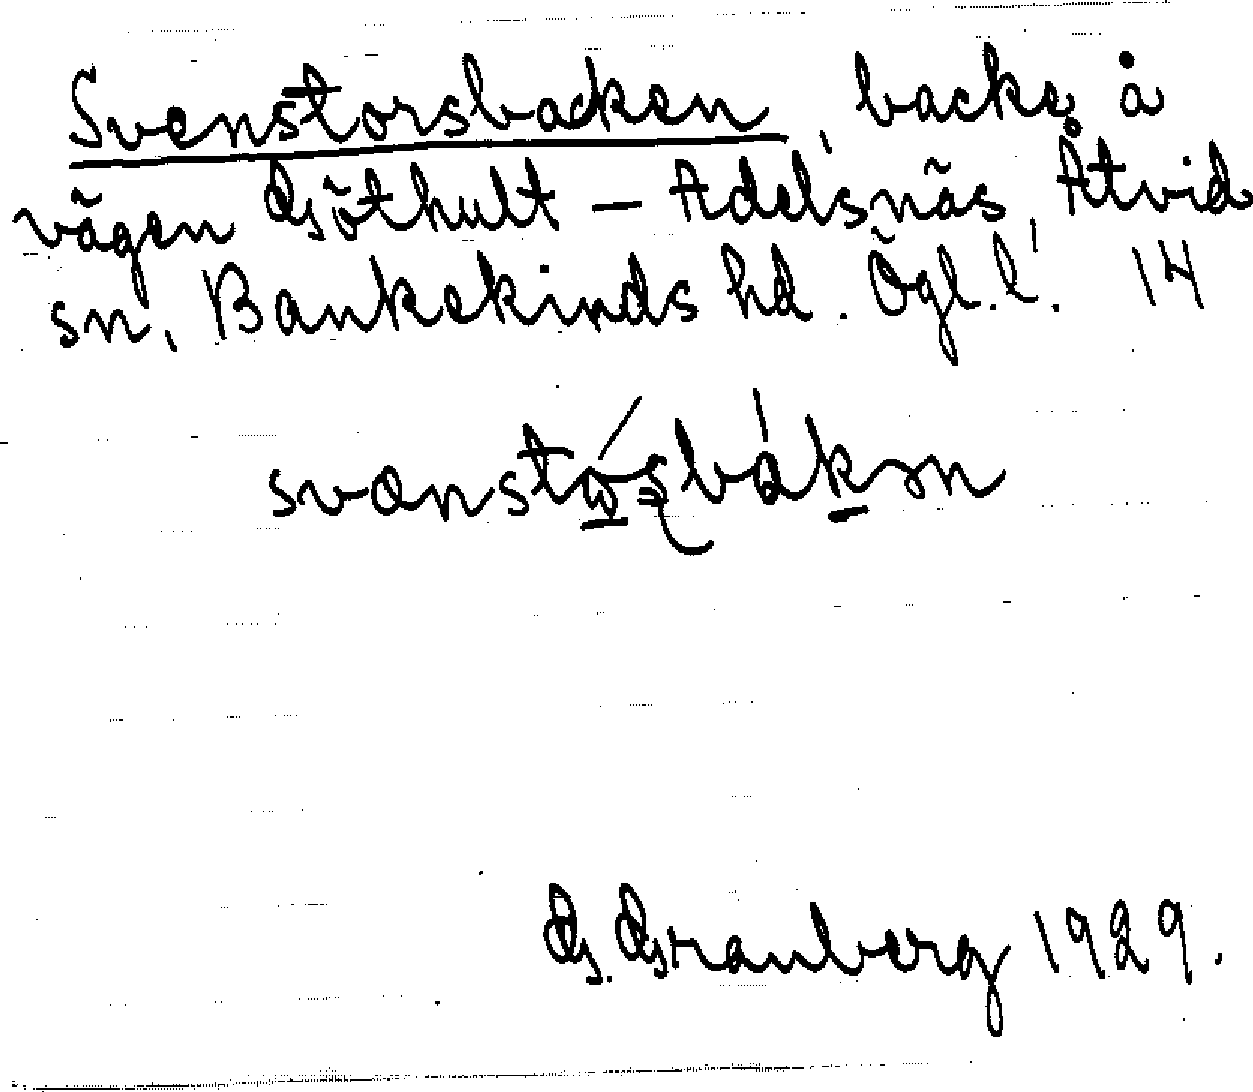 Svenstorsbacken, backe å
vägen Göthult – Adelsnäs, Åtvid
sn, Bankekinds hd. Ögl. l. 14
G. Granberg 1929.